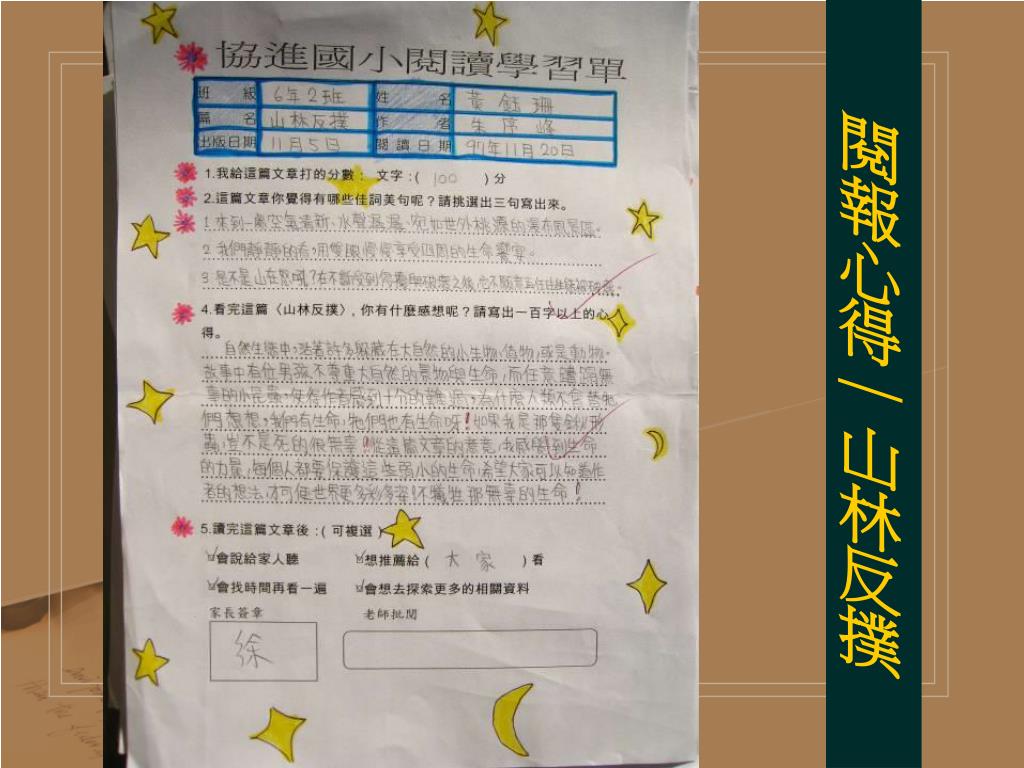 協進國小閱讀學習單
班級 6年2班 姓名 黃鈺珊
篇名 山林反撲 作者 朱序峰
出版日期 11月5日 閱讀日期 97年11月20日
1.我給這篇文章打的分數: 文字:( 100 )分
2.這篇文章你覺得有哪些佳詞美句呢?請挑選出三句寫出來。
1.來到一處空氣清新、水聲潺潺、宛如世外桃源的瀑布風景區。
2.我們靜靜的看,用雙眼慢慢享受四周的生命饗宴。
3.是不是山在怒吼?在不斷受到 與破壞之後,也不願意再任
4.看完這篇〈山林反撲〉,你有什麼感想呢?請寫出一百字以上的心
得。
自然生態中,沿著許多躲藏在大自然的小生物,植物,或是動物。
故事中有位男孩不尊重大自然的景物與生命,而任意蹧蹋無
辜的小昆蟲,使得作者感到十分的難過,為什麼人類不會替牠
們想想,我們有生命,牠們也有生命呀!如果我是那隻鍬形
蟲,豈不是死的很無辜!從這篇文章的意意,我感覺到生命
的力量,每個人都要保護這些弱小的生命,希望大家可以知道作
者的想法,才可使世界更多彩多姿!不犧牲那無辜的生命!
5.讀完這篇文章後:( 可複選 )
會說給家人聽 想推薦給( 大家 )看
會找時間再看一遍 會想去探索更多的相關資料
家長簽章 老師批閱
徐
閱報心得—山林反撲